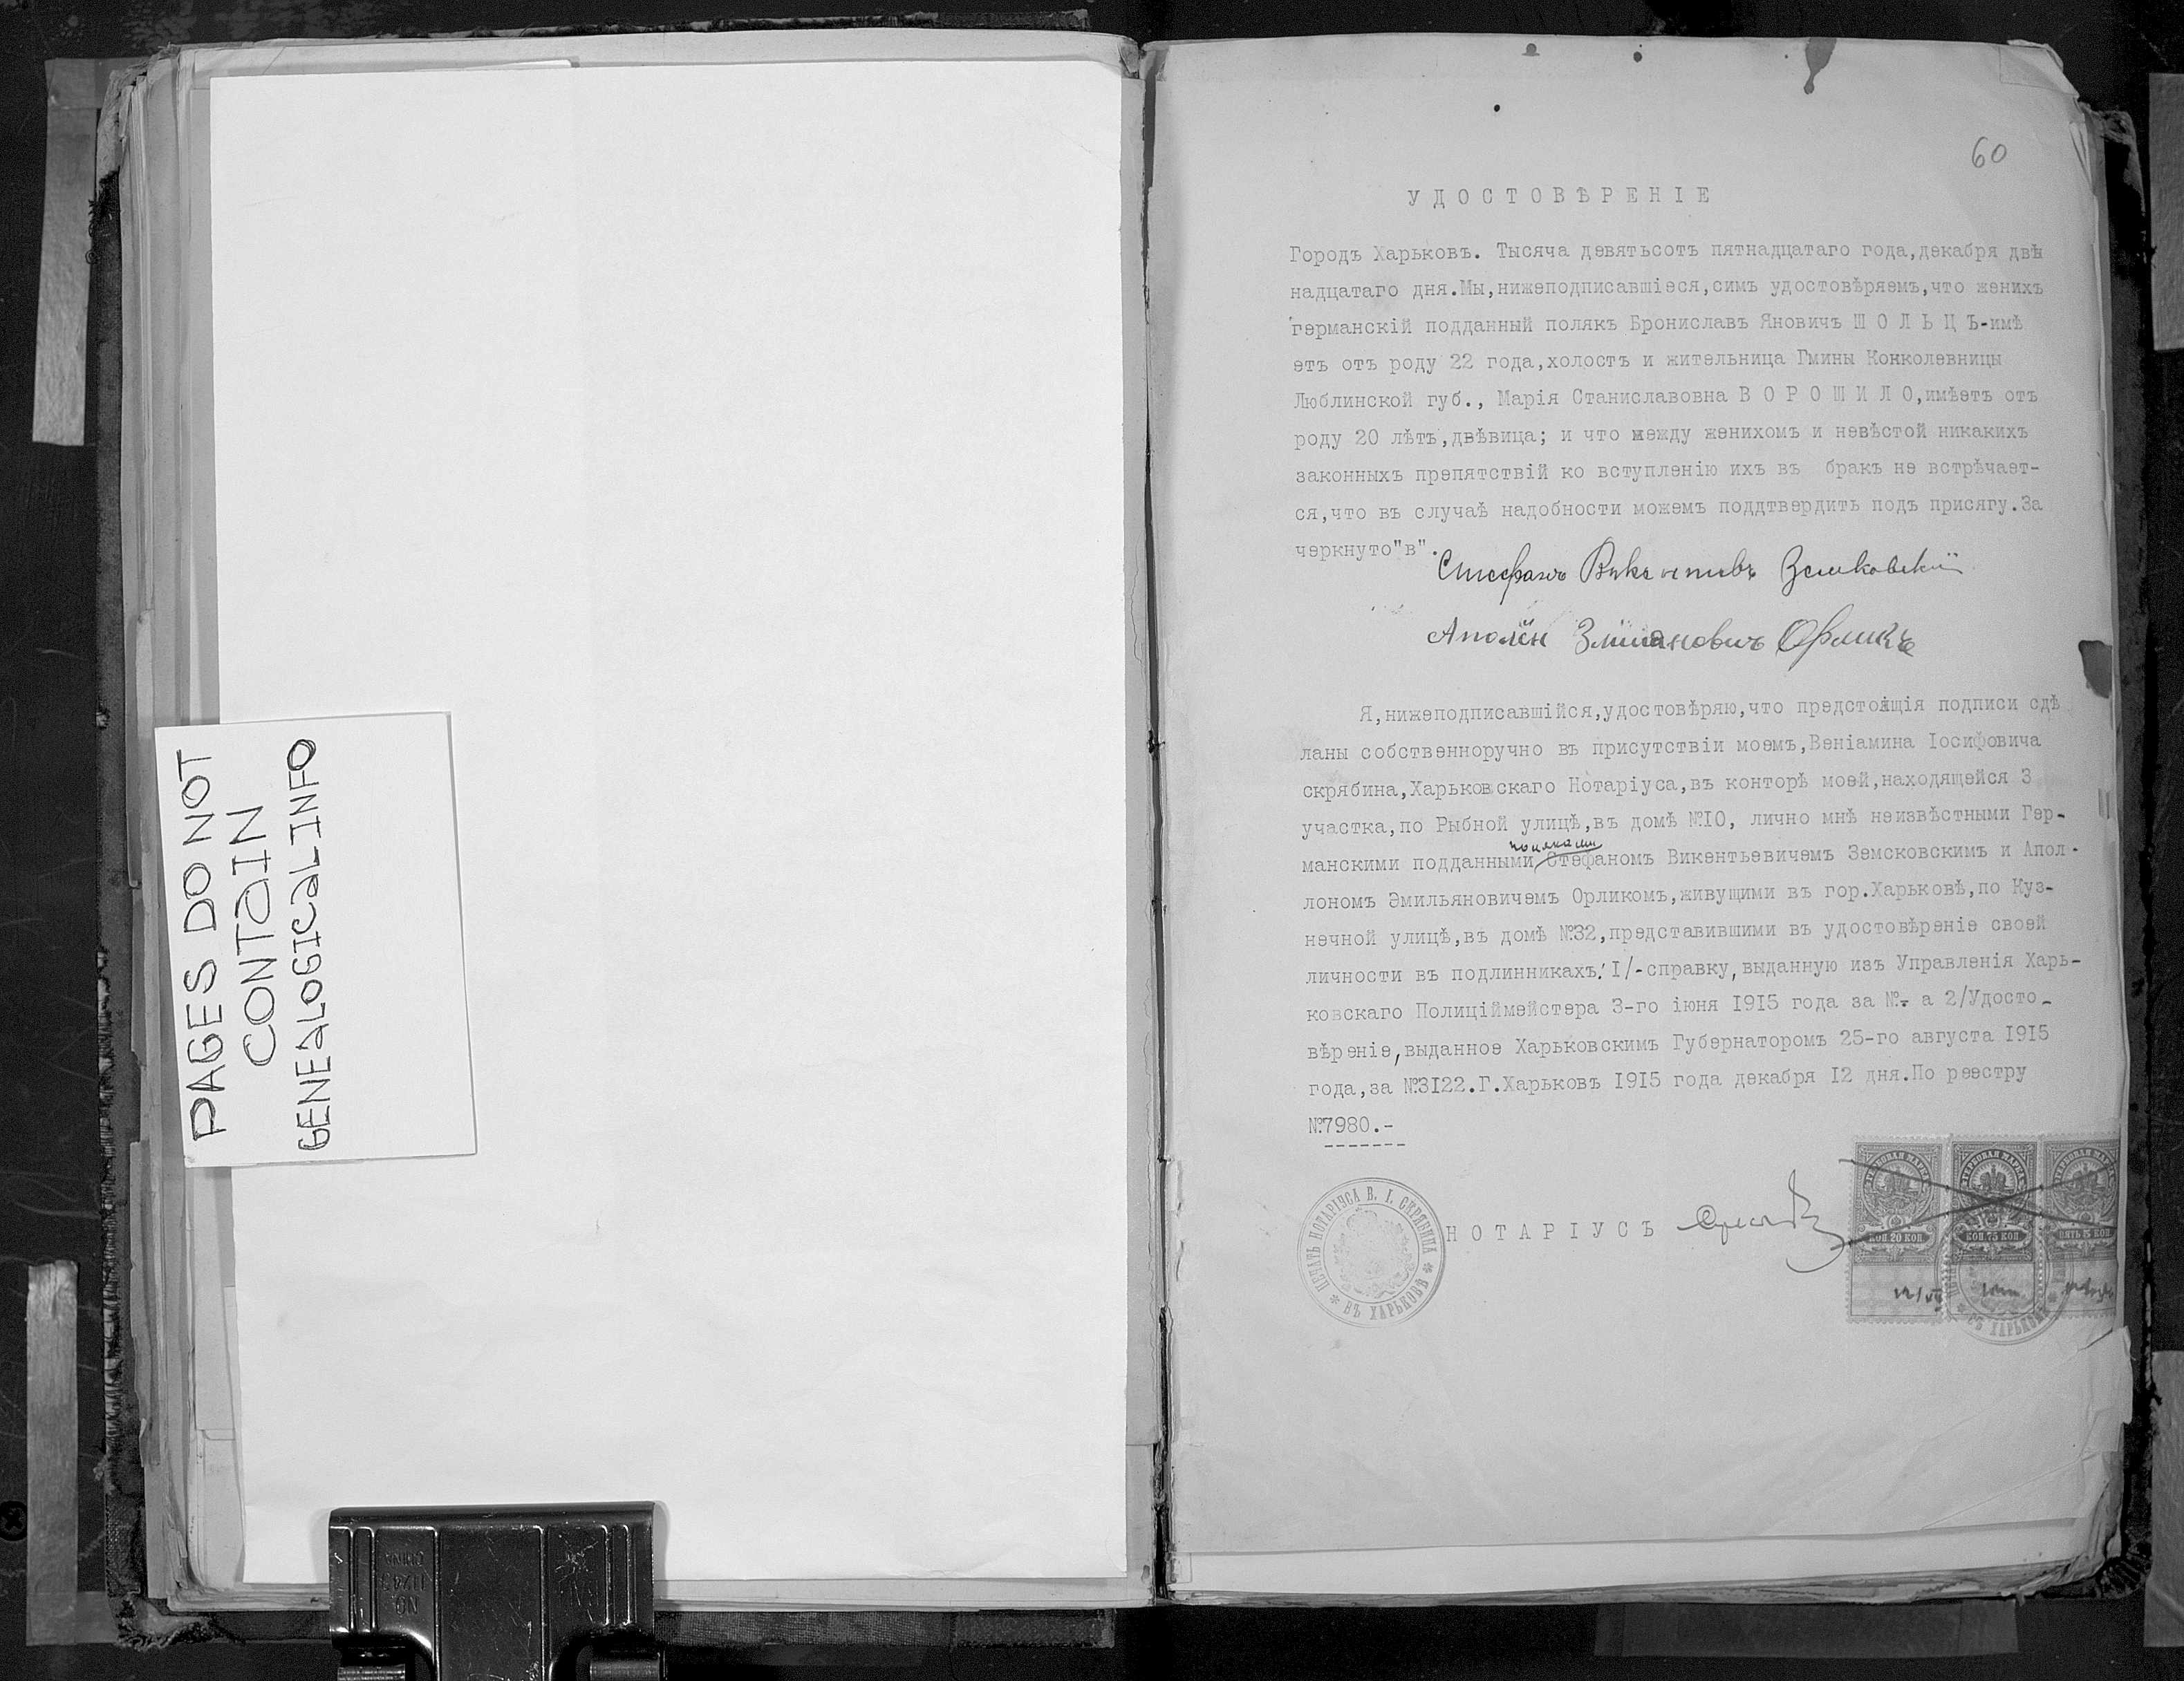 PAGES DO NOT
CONTAIN
GENEALOGICAL INFO
60
УДОСТОВѢРЕНІЕ
Городъ Харьковъ. Тысяча девятьсотъ пятнадцатаго года,декабря двѣ
надцатаго дня.Мы,нижеподписавшіеся,симъ удостовѣряемъ,что женихъ
германскій подданный полякъ Брониславъ Яновичъ Ш О Л Ь Ц Ъ-имѣ
етъ отъ роду 22 года,холостъ и жительница Гмины Конколевницы
Люблинской губ., Марія Станиславовна В О Р О Ш И Л О,имѣетъ отъ
роду 20 лѣтъ,двѣвица; и что между женихомъ и невѣстой никакихъ
законныхъ препятствій ко вступленію ихъ въ бракъ не встрѣчает-
ся,что въ случаѣ надобности можемъ поддтвердить подъ присягу.За
черкнуто"в".
Стефанъ Земковскій
Аполён Орликъ
Я,нижеподписавшійся,удостовѣряю,что предстоящія подписи сдѣ
ланы собственноручно въ присутствіи моемъ,Веніамина Іосифовича
скрябина,Харьковскаго Нотаріуса,въ конторѣ моей,находящейся 3
участка,по Рыбной улицѣ,въ домѣ №10, лично мнѣ неизвѣстными Гер-
поляками
манскими подданными Стефаномъ Викентьевичемъ Земсковскимъ и Апол-
лономъ Эмильяновичемъ Орликомъ,живущими въ гор.Харьковѣ,по Куз-
нечной улицѣ,въ домѣ №32,представившими въ удостовѣреніе своей
личности въ подлинникахъ:I/-справку,выданную изъ Управленія Харь-
ковскаго Полиціймейстера 3-го іюня 1915 года за №- а 2/Удосто-
вѣреніе,выданное Харьковскимъ Губернаторомъ 25-го августа 1915
года,за №3122.Г.Харьковъ 1915 года декабря 12 дня.По реестру
№7980.-
ПЕЧАТЬ НОТАРІУСА В. І. СКРЯБИНА * ВЪ ХАРЬКОВѢ *
НОТАРІУСЪ
ГЕРБОВАЯ МАРКА ГЕРБОВАЯ МАРКА ГЕРБОВАЯ МАРКА
КОП. 20 КОП КОП. 75 КОП ПЯТЬ 5 КОП
ВЪ ХАРЬКОВѢ
NO
11243
CHINA